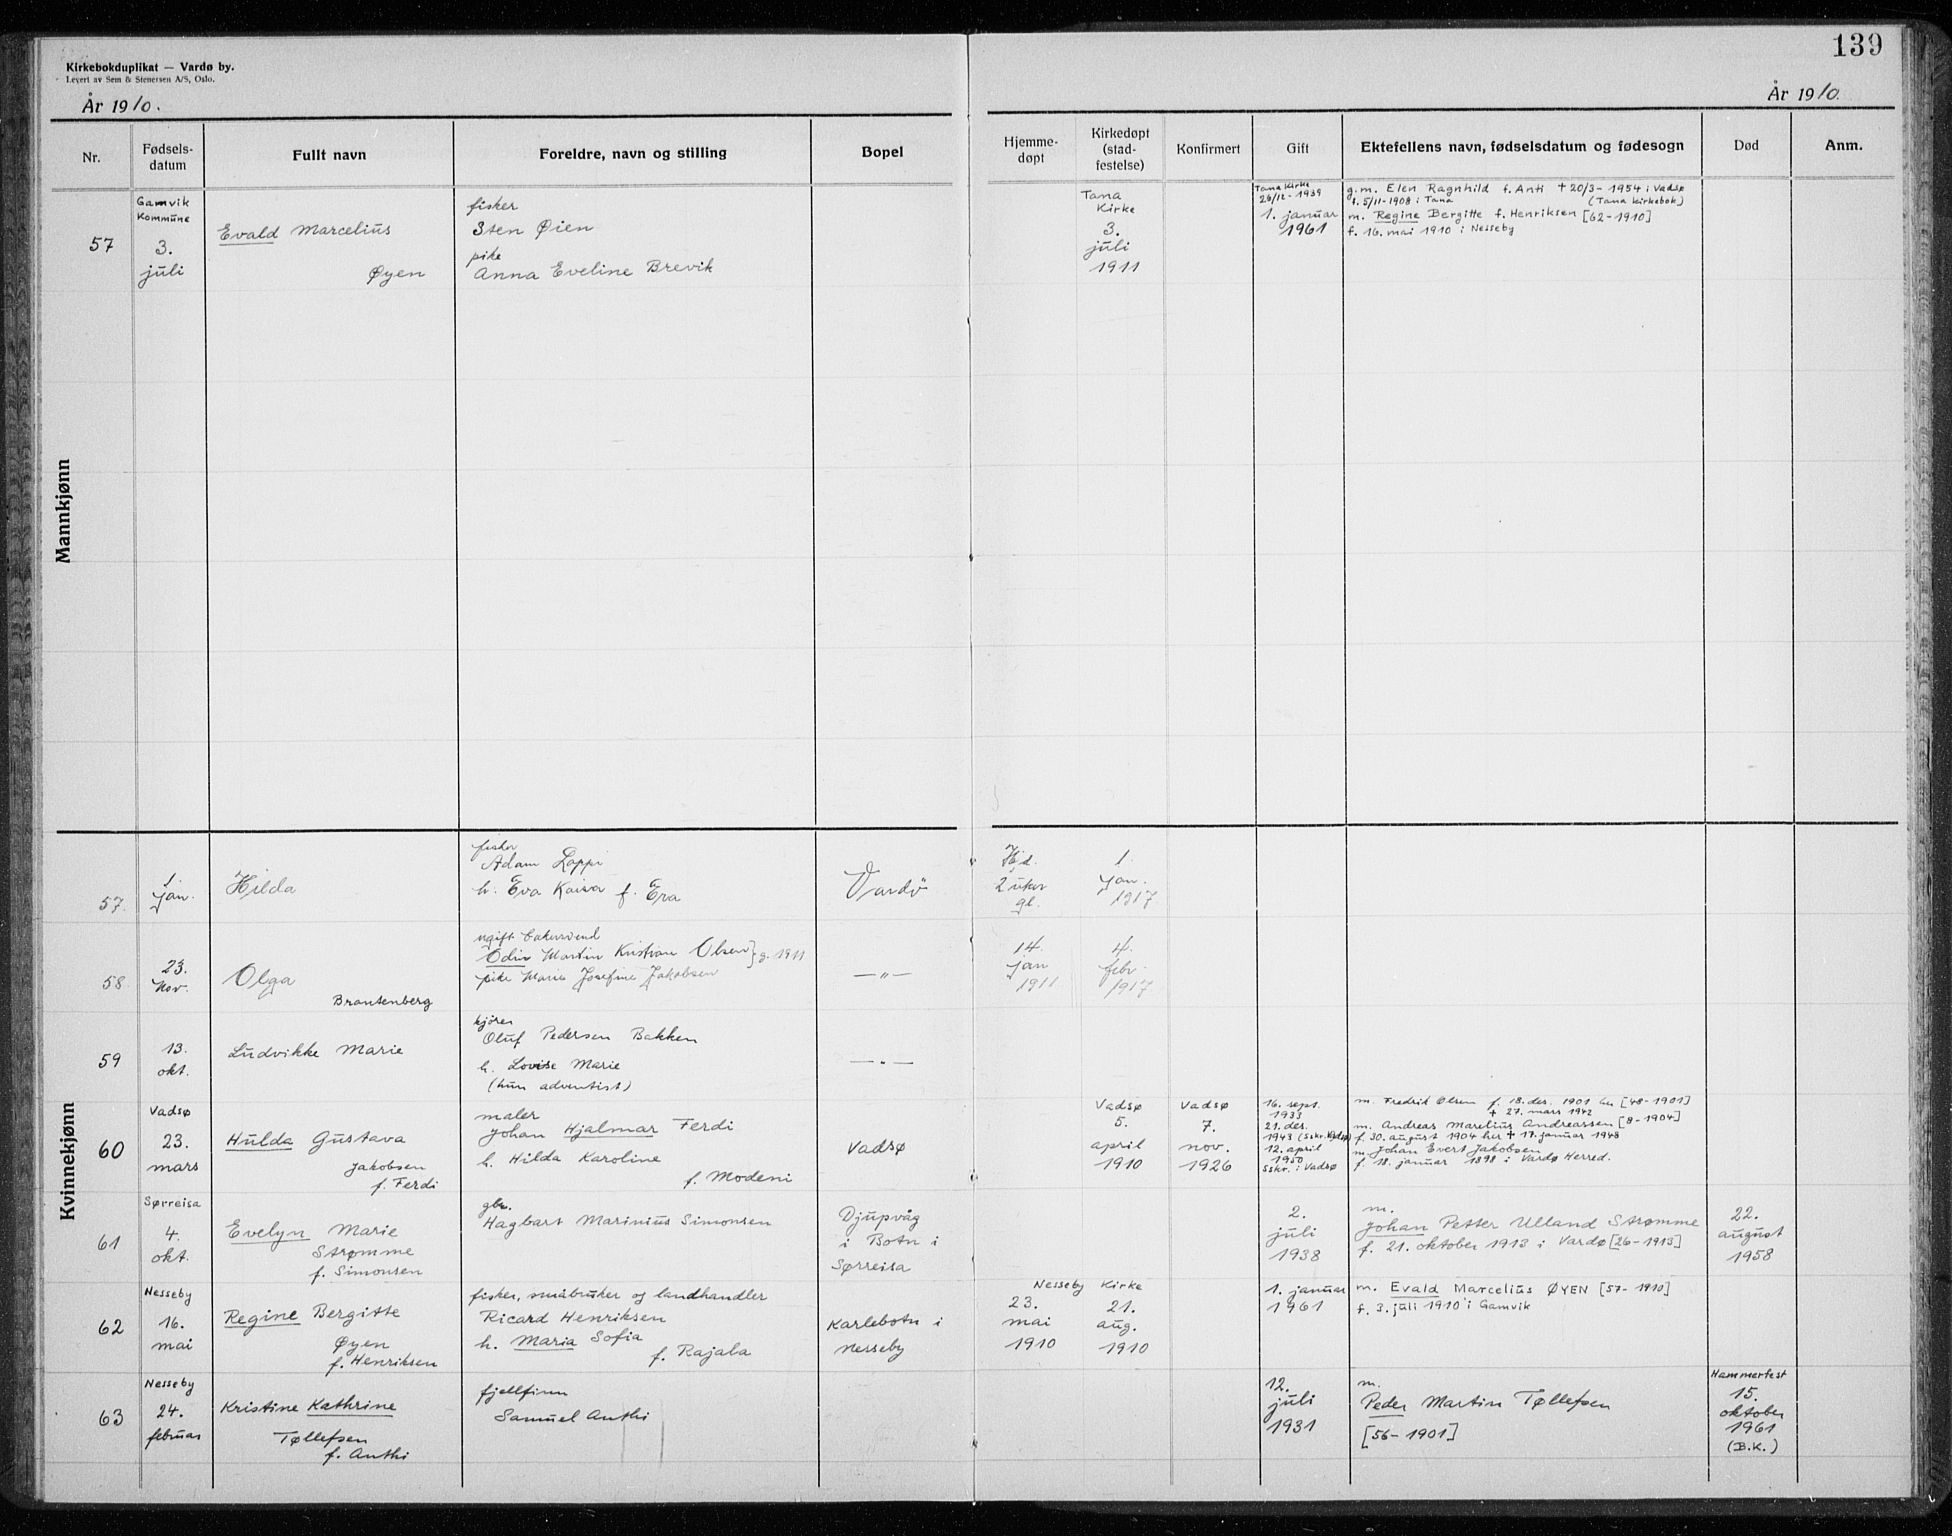 139
Kirkebokduplikat — Vardø by.
Levert av Sem & Stenersen A/S, Oslo.
År 1910.
År 1910.
Nr.
Fødsels-
datum
Fullt navn
Foreldre, navn og stilling
Bopel
Hjemme-
døpt
Kirkedøpt
(stad-
festelse)
Konfirmert
Gift
Ektefellens navn, fødselsdatum og fødesogn
Død
Anm.
Mannkjønn
57
Gamvik
Kommune
3.
juli
Evald Marcelius
Øyen
fisker
Sten Øien
pike
Anna Eveline Brevik
Tana
Kirke
3.
juli
1911
Tana Kirke
26/12-1939
1. januar
1961
g.m. Elen Ragnhild f. Anti + 20/3-1954 i Vadsø
f. 5/11-1908 i Tana (Tana Kirkebok)
m. Regine Bergitte f. Henriksen [62-1910]
f. 16. mai 1910 i Nesseby
Kvinnekjønn
57.
1.
jan.
Hilda
fisker
Adam Lappi
h. Eva Kaisa f. Era
Vardø
Hjd.
2 uker
gl.
1.
jan.
1917
58
23.
Nov.
Olga
Brantenberg
ugift bakersvend
Odin Martin Kristian Olsen } g. 1911
pike Marie Josefine Jakobsen
—„—
14.
jan
1911
4.
febr.
1917
59
13.
okt.
Ludvikke Marie
kjører
Oluf Pedersen Bakken
h. Lovise Marie
(hun adventist)
—„—
60
Vadsø
23.
mars
Hulda Gustava
Jakobsen
f. Ferdi
maler
Johan Hjalmar Ferdi
h. Hilda Karoline
f. Modeni
Vadsø
Vadsø
5.
april
1910
Vadsø
7.
nov.
1926
16. sept.
1933
21. des.
1943 (Sskr. Vadsø)
12. april
1950
Sskr. i Vadsø
m. Fredrik Olsen f. 18. des. 1901 her [48-1901]
+ 27. mars 1942
m. Andreas Marelius Andreassen [8-1904]
f. 30. august 1904 her + 17. januar 1948
m. Johan Evert Jakobsen
f. 18. januar 1898 i Vardø Herred.
61
Sørreisa
4.
okt.
Evelyn Marie
Strømme
f. Simonsen
gbr.
Hagbart Marinius Simonsen
Djupvåg
i Botn i
Sørreisa
2.
juli
1938
m.
Johan Petter Ulland Strømme
f. 21. oktober 1913 i Vardø [26-1913]
22.
august
1958
62
Nesseby
16.
mai
Regine Bergitte
Øyen
f. Henriksen
fisker, småbruker og landhandler
Ricard Henriksen
h. Maria Sofia
f. Rajala
Karlebotn i
Nesseby
Nesseby Kirke
23.
mai
1910
21.
aug.
1910
1. januar
1961
m. Evald Marcelius ØYEN [57-1910]
f. 3. juli 1910 i Gamvik
63
Nesseby
24.
februar
Kristine Kathrine
Tøllefsen
f. Anthi
fjellfinn
Samuel Anthi
12.
juli
1931
m.
Peder Martin Tøllefsen
[56-1901]
Hammerfest
15.
oktober
1961
(B.K.)